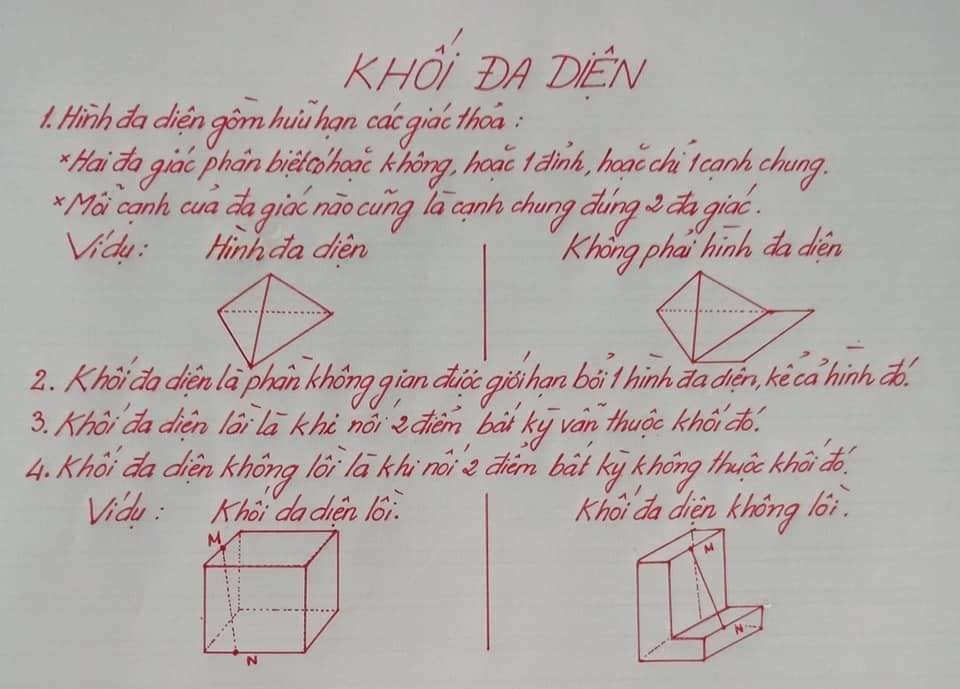 KHỐI ĐA DIỆN
1. Hình đa diện gồm hữu hạn các giác thỏa :
*Hai đa giác phân biệt có hoặc không, hoặc 1 đỉnh, hoặc chỉ 1 cạnh chung.
*Mỗi cạnh của đa giác nào cũng là cạnh chung đúng 2 đa giác.
Ví dụ : Hình đa diện Không phải hình đa diện
2. Khối đa diện là phần không gian được giới hạn bởi 1 hình đa diện, kể cả hình đó.
3. Khối đa diện lồi là khi nối 2 điểm bất kỳ vẫn thuộc khối đó.
4. Khối đa diện không lồi là khi nối 2 điểm bất kỳ không thuộc khối đó.
Ví dụ : Khối đa diện lồi. Khối đa diện không lồi.
M M
N N